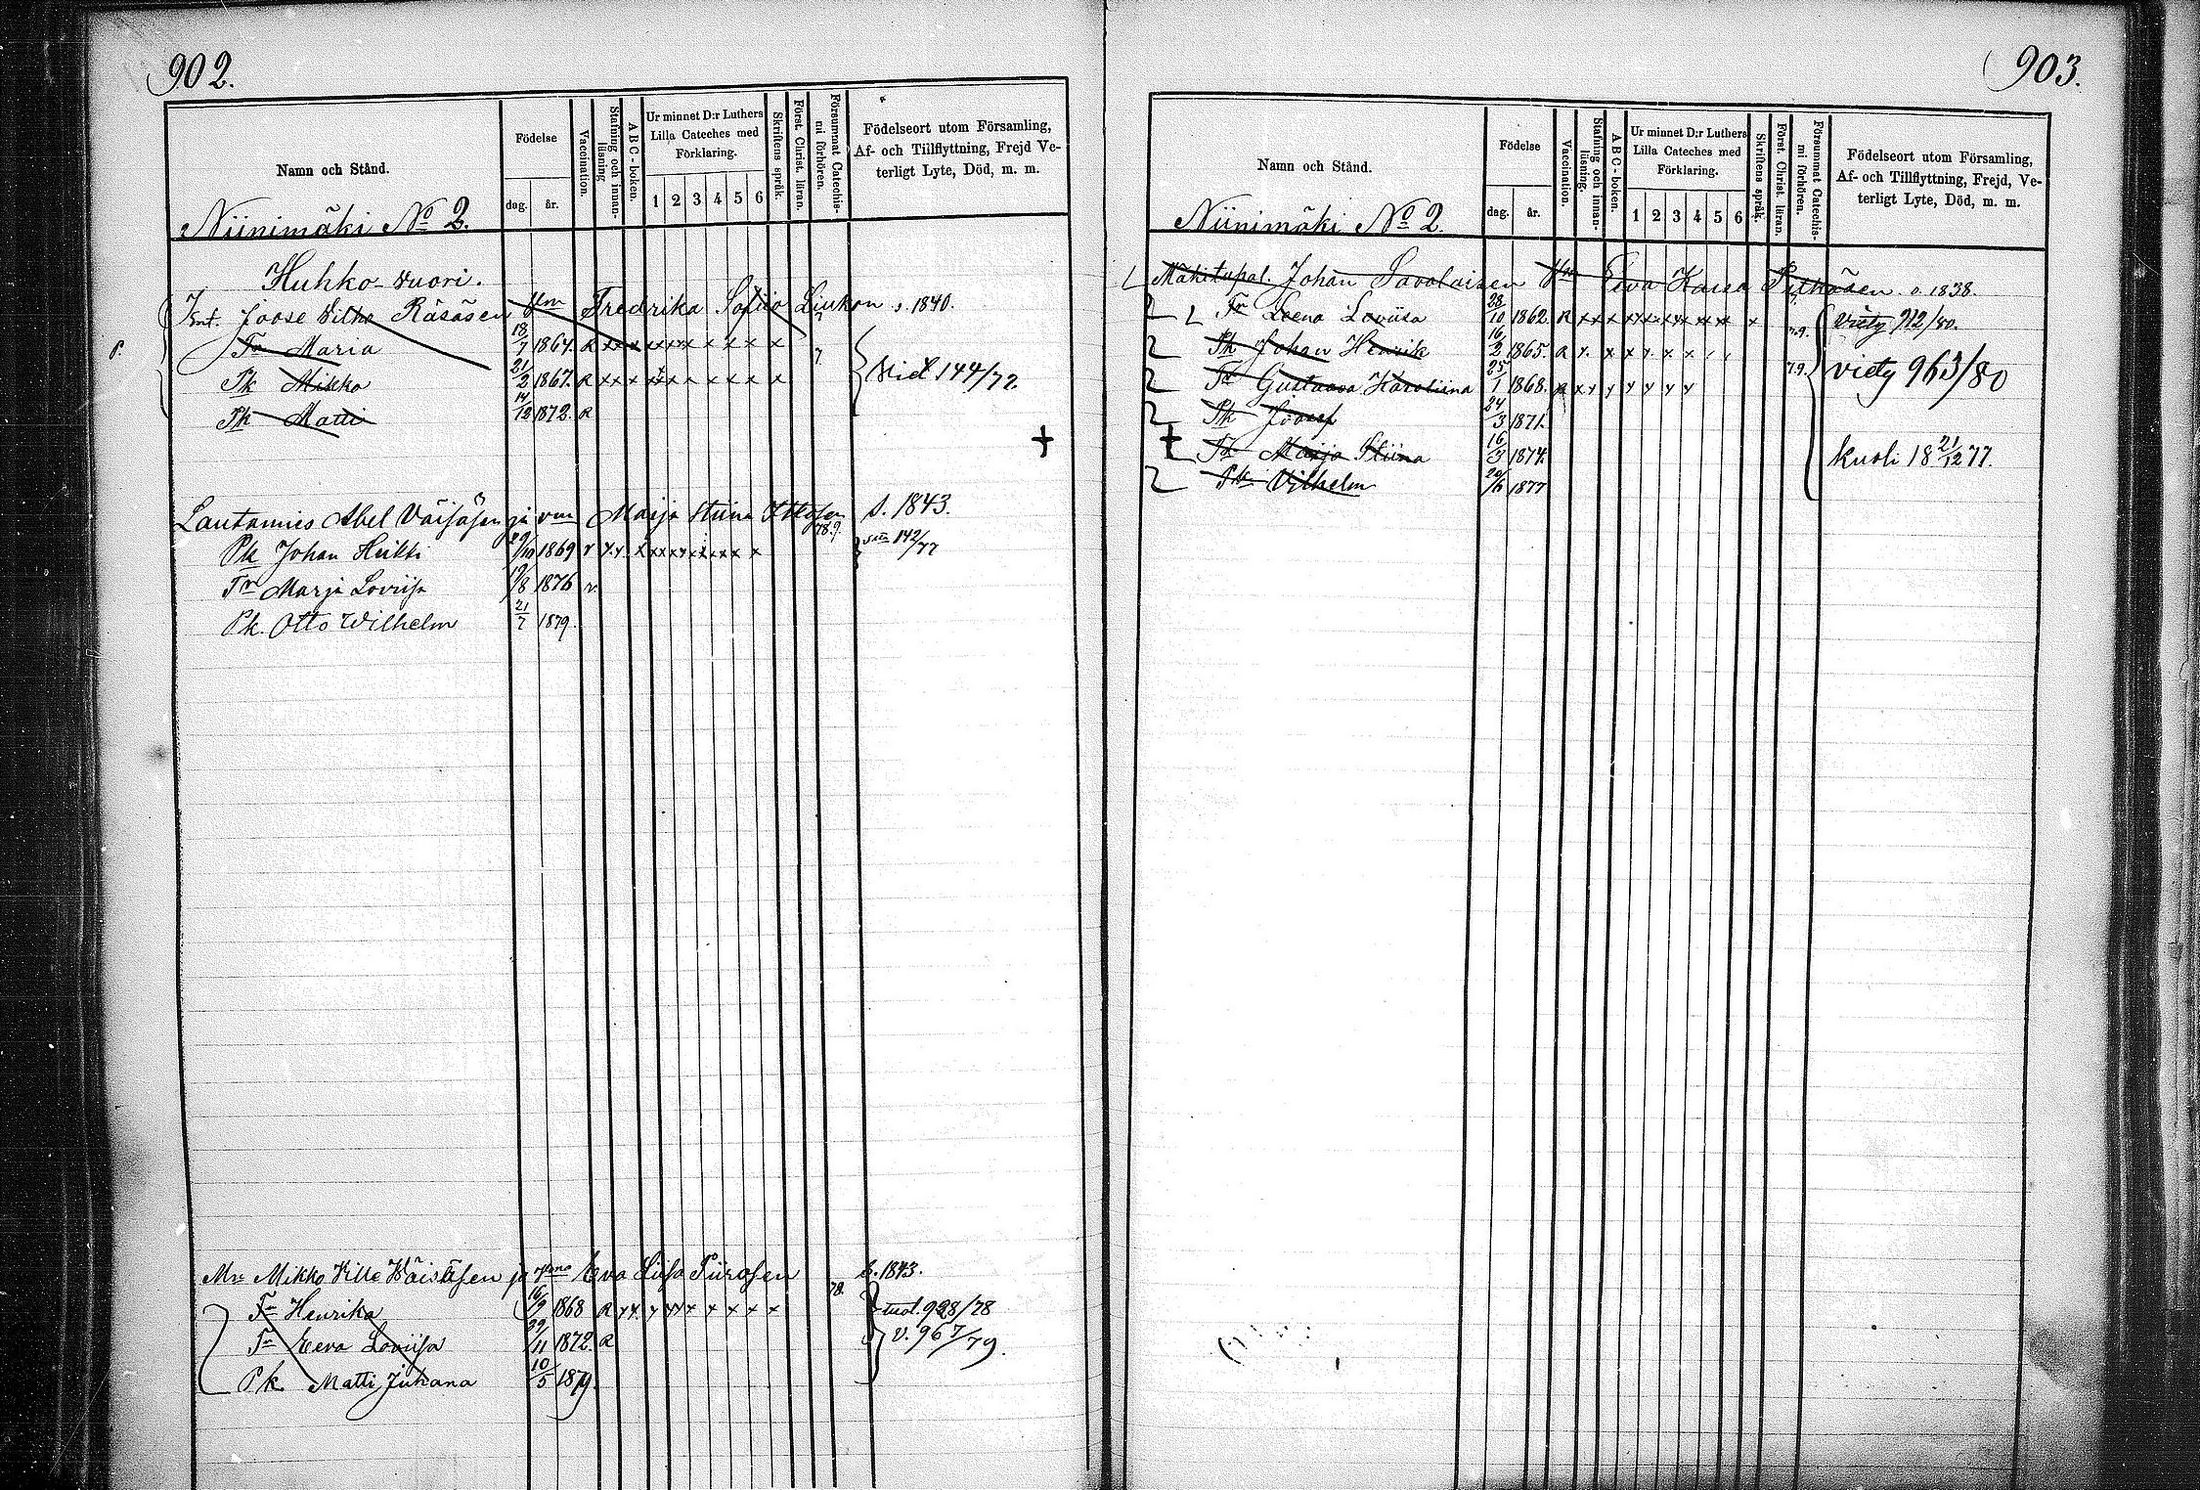 902.
Namn och Stånd.
Födelse
dag. år.
Vaccination.
Stafning och innan-läsning
ABC-boken.
Ur minnet D:r Luthers Lilla Cateches med Förklaring.
1 2 3 4 5 6
Skriftens språk.
Först. Christ. läran.
Försummat Catechis-mi förhören.
Födelseort utom Församling, Af- och Tillflyttning, Frejd Ve-terligt Lyte, Död, m. m.
Niinimäki No 2.
Huhko-vuori.
Joose Räsäsen Fredrika Sofiia Liukon s. 1840.
Tr Maria 18/7 1864. R x x x x x x x x x x
Pk Mikko 21/2 1867. R x x x x x x x x x x Vied. 144/72.
Pk Matti 14/12 1872. R
Lautamies Abel Väisäsen ja vm Maija Stiina s. 1843.
Pk Johan Heikki 1869 142/77
Tr Marja Loviisa 19/8 1876 r.
Pk. Otto Wilhelm 21/7 1879.
Mikko Ville Wäisäsen ja Eva Liisa Piirosen s. 1843.
Tr Henrika 16/9 1868 R x x x x x x x x x 78. tuol. 928/78
Tr Eeva Loviisa 1872. R v. 967/79.
Pk. Matti Juhana 10/5 1879.
903.
Namn och Stånd.
Födelse
dag. år.
Vaccination.
Stafning och innan-läsning.
ABC-boken.
Ur minnet D:r Luthers Lilla Cateches med Förklaring.
1 2 3 4 5 6
Skriftens språk.
Först. Christ. läran.
Försummat Catechis-mi förhören.
Födelseort utom Församling, Af- och Tillflyttning, Frejd, Ve-terligt Lyte, Död, m. m.
Niinimäki No 2.
Mäkitupal. Johan Savolaisen Eva Kaisa s. 1838.
Tr Leena Loviisa 28/10 1862. R x x x x x x x x x x 79. viety 912/80.
Pk Johan Henrik 16/2 1865. R x x x x x x
Tr Gustaava Karoliina 25/1 1868. R x y y y y y y 79. viety 963/80
Pk Joosef 24/3 1871.
Tr Marja Stiina 16/3 1874. kuoli 18 21/12 77.
Pk Vilhelm 20/6 1877